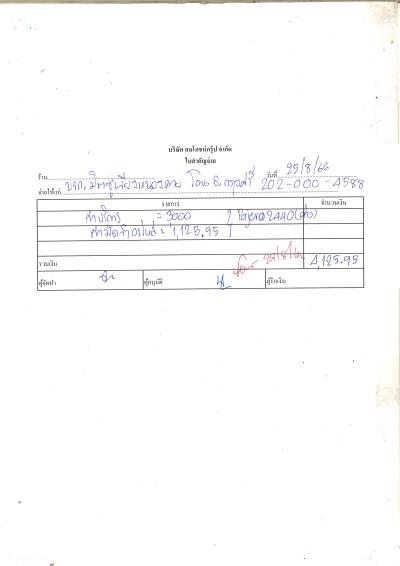 บริษัท สมโภชน์กรุ๊ป จำกัด
ใบสำคัญจ่าย
ร้าน วันที่ 25/8/66
จ่ายให้แก่ บจก. มิตซูเจียงหนองคาย โอน ธ.กรุงศรี 202-000-4588
รายการ จำนวนเงิน
ค่าบริการ = 3000
ค่ามัดจำอะไหล่ = 1,125.95
รวมเงิน 25/8/66 4,125.95
ผู้จัดทำ ผู้อนุมัติ ผู้รับเงิน